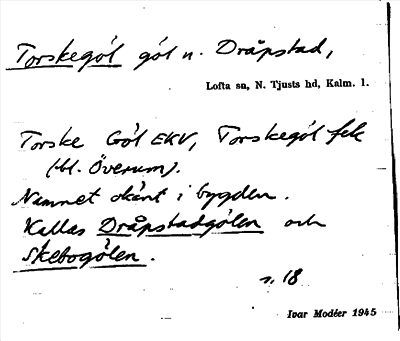 Torskegöl göl n. Dråpstad,
Lofta sn, N. Tjusts hd, Kalm. l.
Torske Göl EKV, Torskegöl fek
(bl. Överum).
Namnet okänt i bygden.
Kallas Dråpstadgölen och
Skebogölen.
s. 18
Ivar Modéer 1945